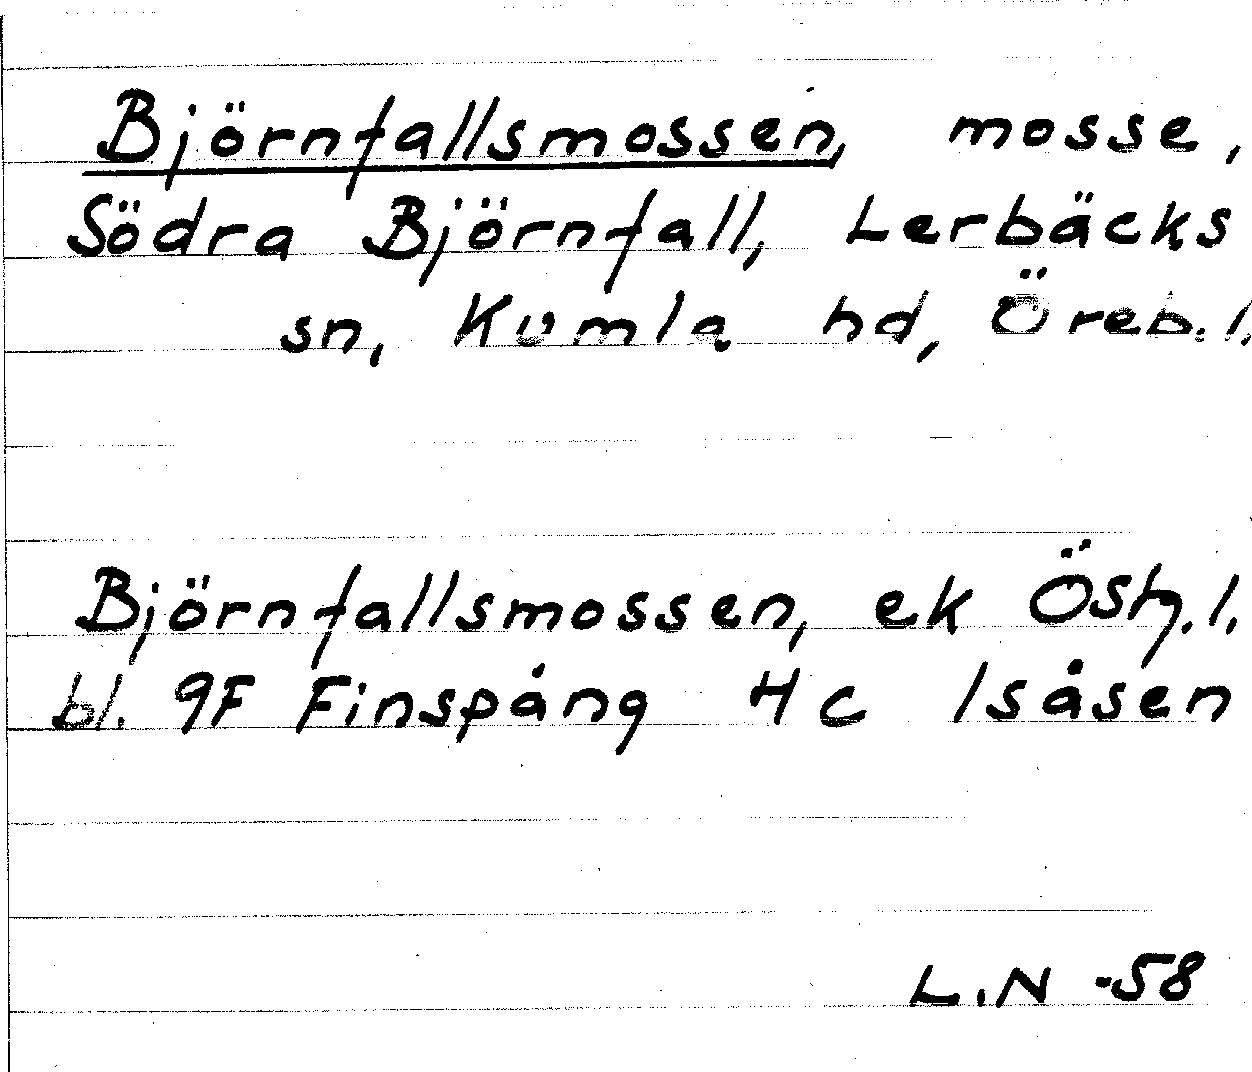 Björnfallsmossen, mosse,
Södra Björnfall, Lerbäcks
sn, Kumla hd, Öreb. l.
Björnfallsmossen, ek Östg. l.
bl. 9F Finspång 4c Isåsen
L.N -58